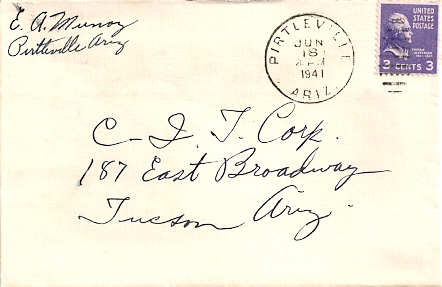 E. A. Munoz
Pirtleville Ariz
PIRTLEVILLE
JUN
18
4 PM
1941
ARIZ.
UNITED
STATES
POSTAGE
3 CENTS 3
C-I. T. Corp.
187 East Broadway
Tucson Ariz.